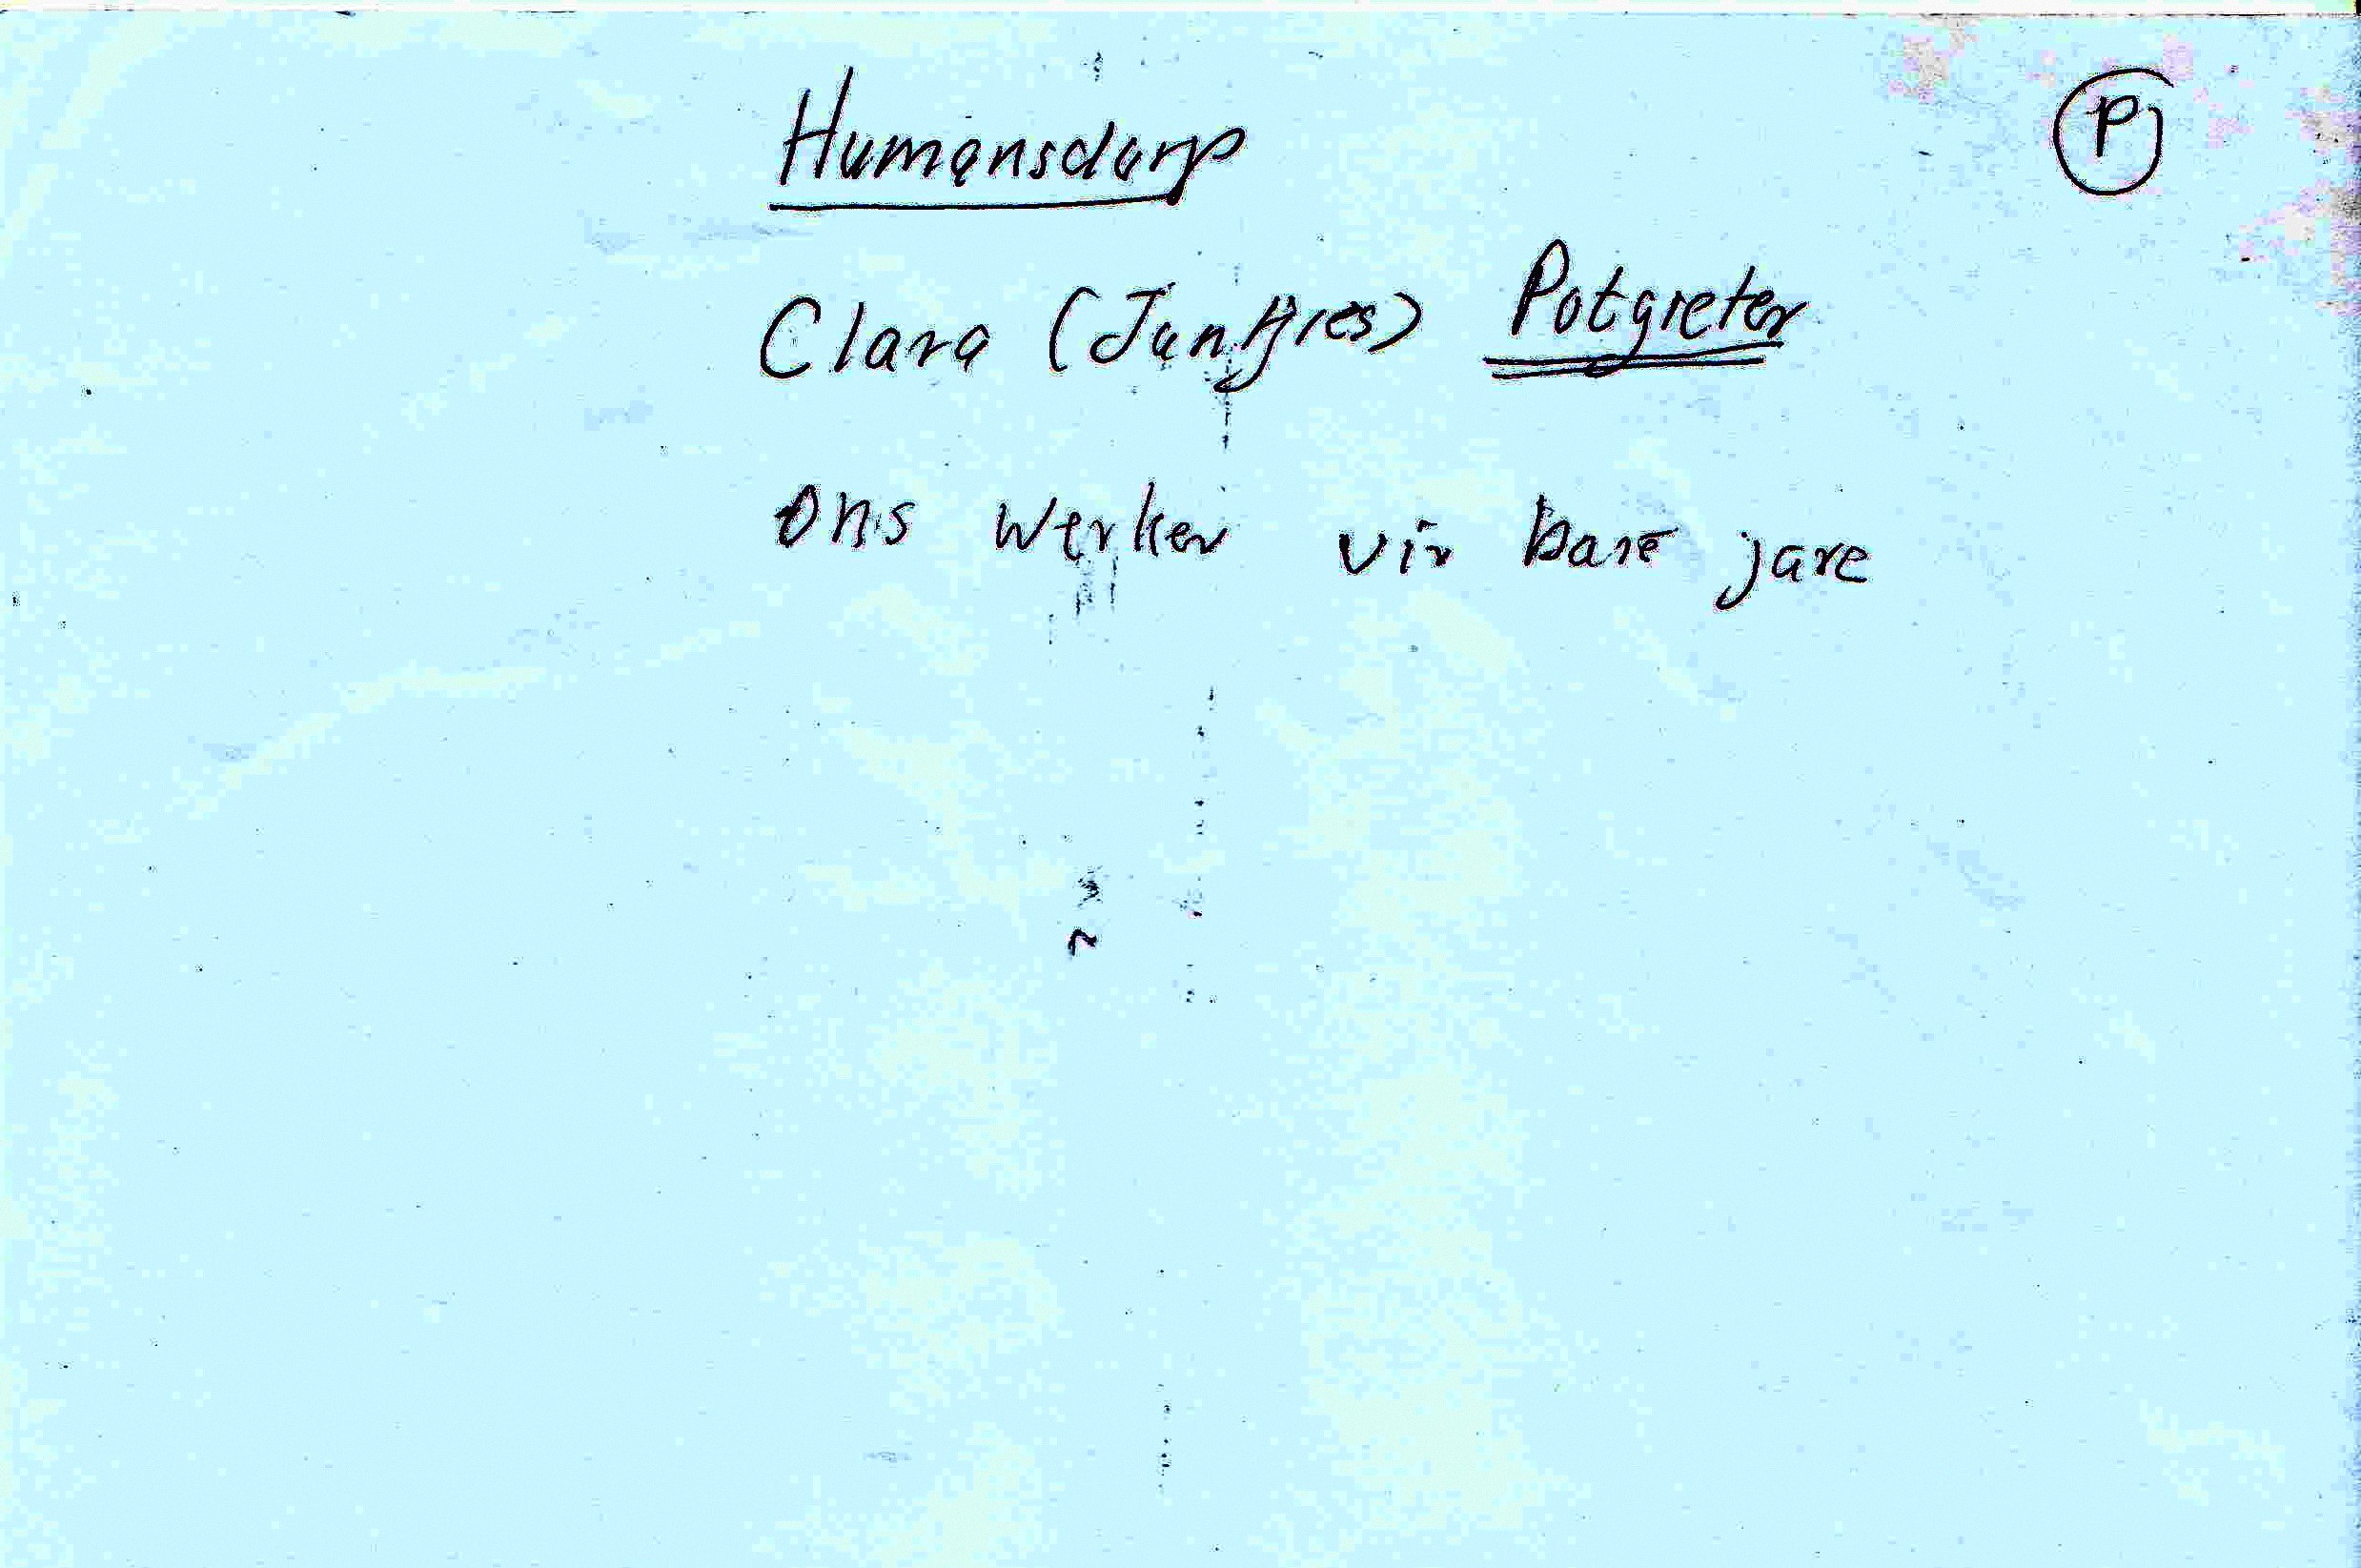 Humansdorp P
Clara (Jantjies) Potgieter
Ons werker vir baie jare